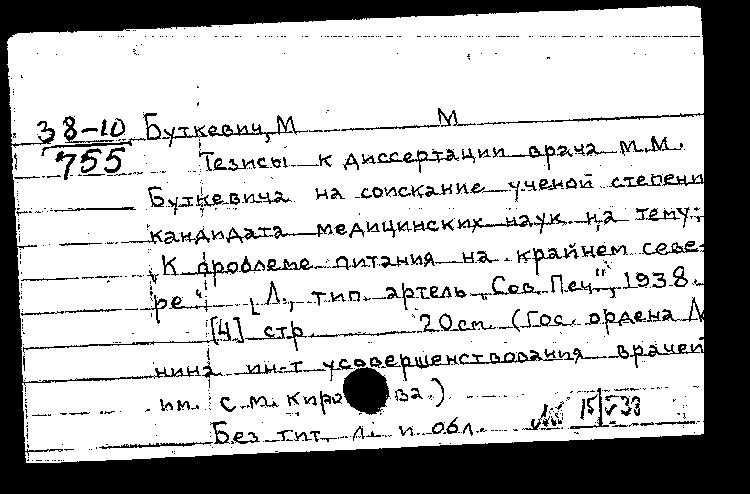 38-10 Буткевич, М М
755 Тезисы к диссертации врача М.М.
Буткевича на соискание ученой степени
кандидата медицинских наук на тему:
„К проблеме питания на крайнем севе-
ре". [Л., тип. артель „Сов. Печ."], 1938.
[4] стр. 20см. (Гос. ордена Л
нина ин-т усовершенствования врачей
им. С.М. Кирова.)
Без тит. л. и обл. 15/V 38